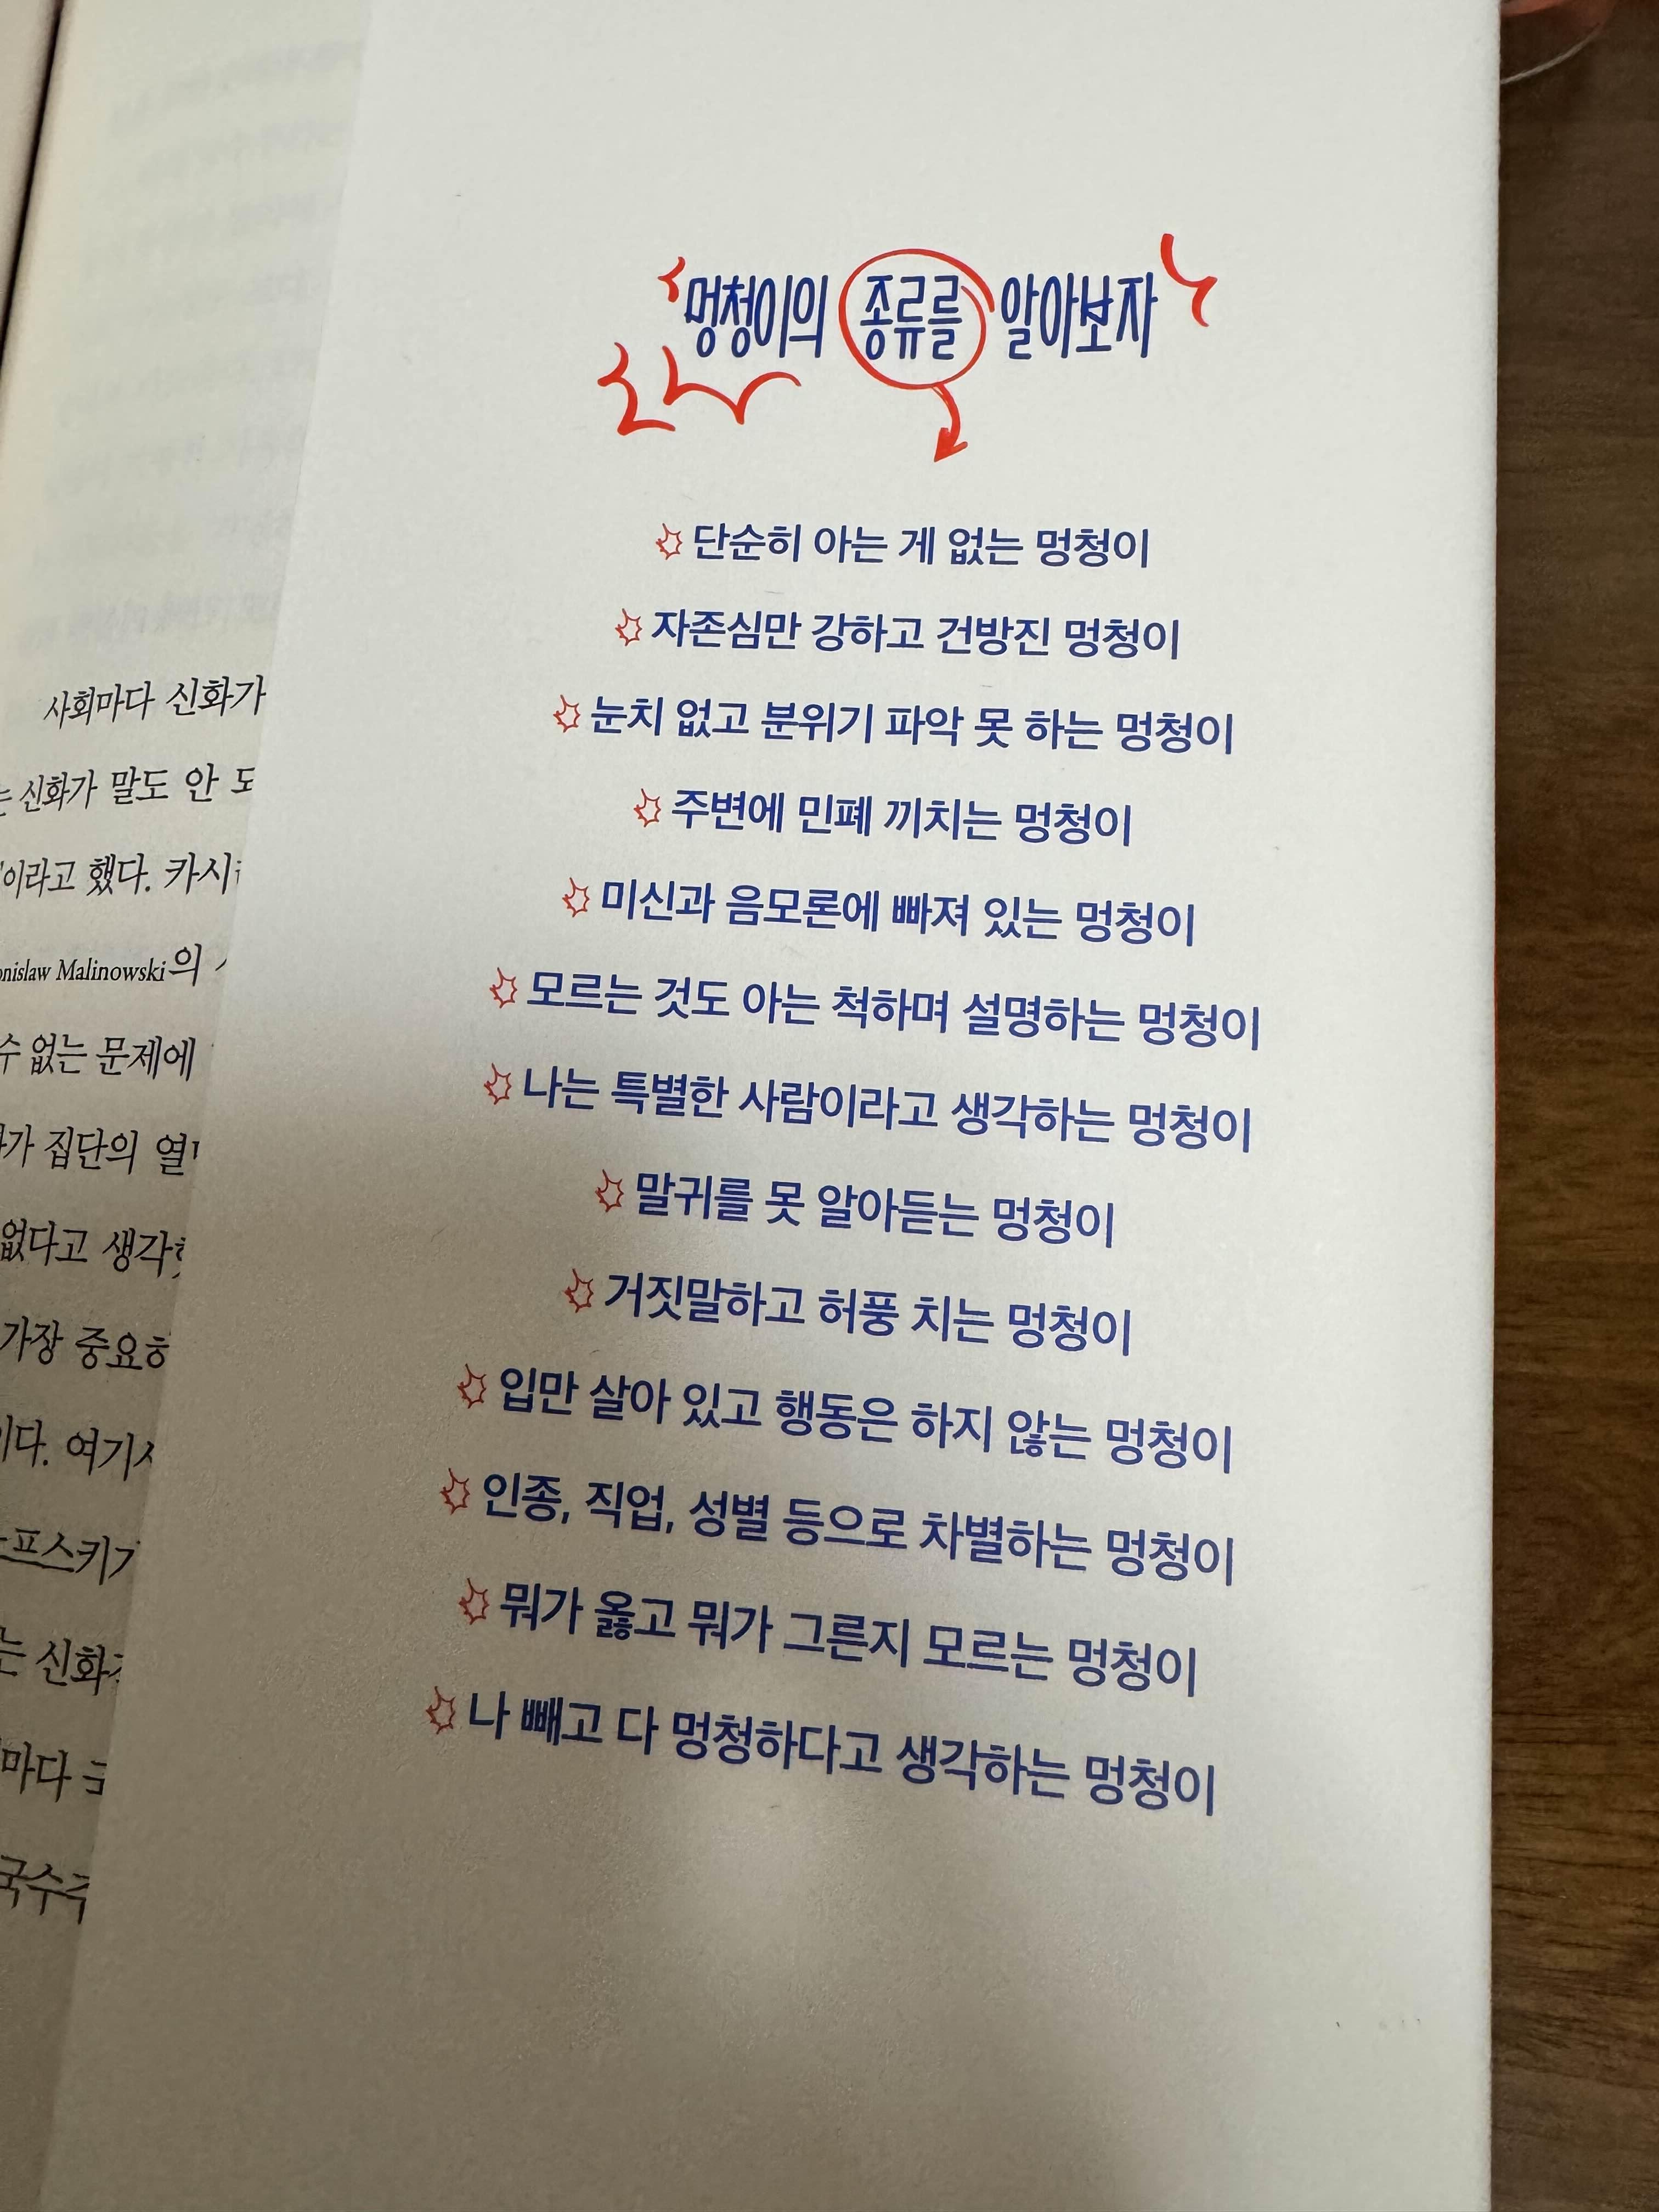 사회마다 신화가
신화가 말도 안
이라고 했다.
Malinowski의
수 없는 문제에
집단의
없다고
가장
여기서
는 신화
마다
멍청이의 종류를 알아보자
단순히 아는 게 없는 멍청이
자존심만 강하고 건방진 멍청이
눈치 없고 분위기 파악 못 하는 멍청이
주변에 민폐 끼치는 멍청이
미신과 음모론에 빠져 있는 멍청이
모르는 것도 아는 척하며 설명하는 멍청이
나는 특별한 사람이라고 생각하는 멍청이
말귀를 못 알아듣는 멍청이
거짓말하고 허풍 치는 멍청이
입만 살아 있고 행동은 하지 않는 멍청이
인종, 직업, 성별 등으로 차별하는 멍청이
뭐가 옳고 뭐가 그른지 모르는 멍청이
나 빼고 다 멍청하다고 생각하는 멍청이